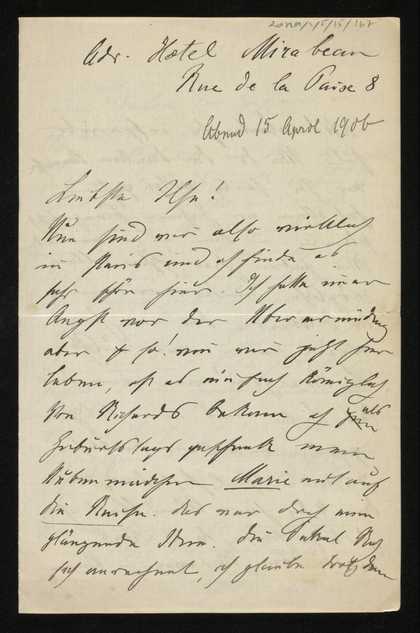 Adr. Hotel Mirabeau
Rue de la Paise 8
Abend 15 April 1906
Liebste Ilse!
Nun sind wir also wirklich
in Paris und ich finde es
sehr schön hier. Ich hatte immer
Angst vor der Übermüdung
aber so! wie wir jetzt hier
leben, ist es einfach königlich
Von Richard bekam ich als
Geburtstags geschenk mein
Stubenmädchen Marie mit auf
die Reise. das war doch eine
glänzende Idee. die
sich ausrechnet, ich glaube trotzdem